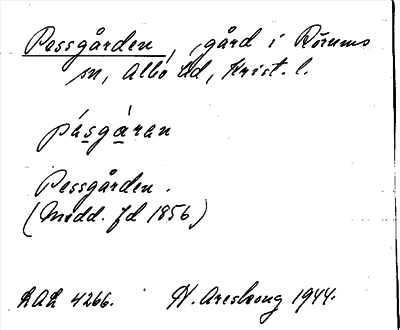 Pessgården, gård i Rörums
sn, Albo hd, Krist. l.
pásgáran
Pessgården.
(Medd. fd 1856)
LAL 4266. N. Areskoug 1944.